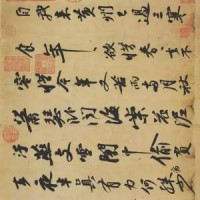 自我來黃州已過三寒
食年〻欲惜春〻去不
容惜今年又苦雨兩月秋
蕭瑟臥聞海棠花泥
污燕支雪闇中偷負
去夜半真有力何殊